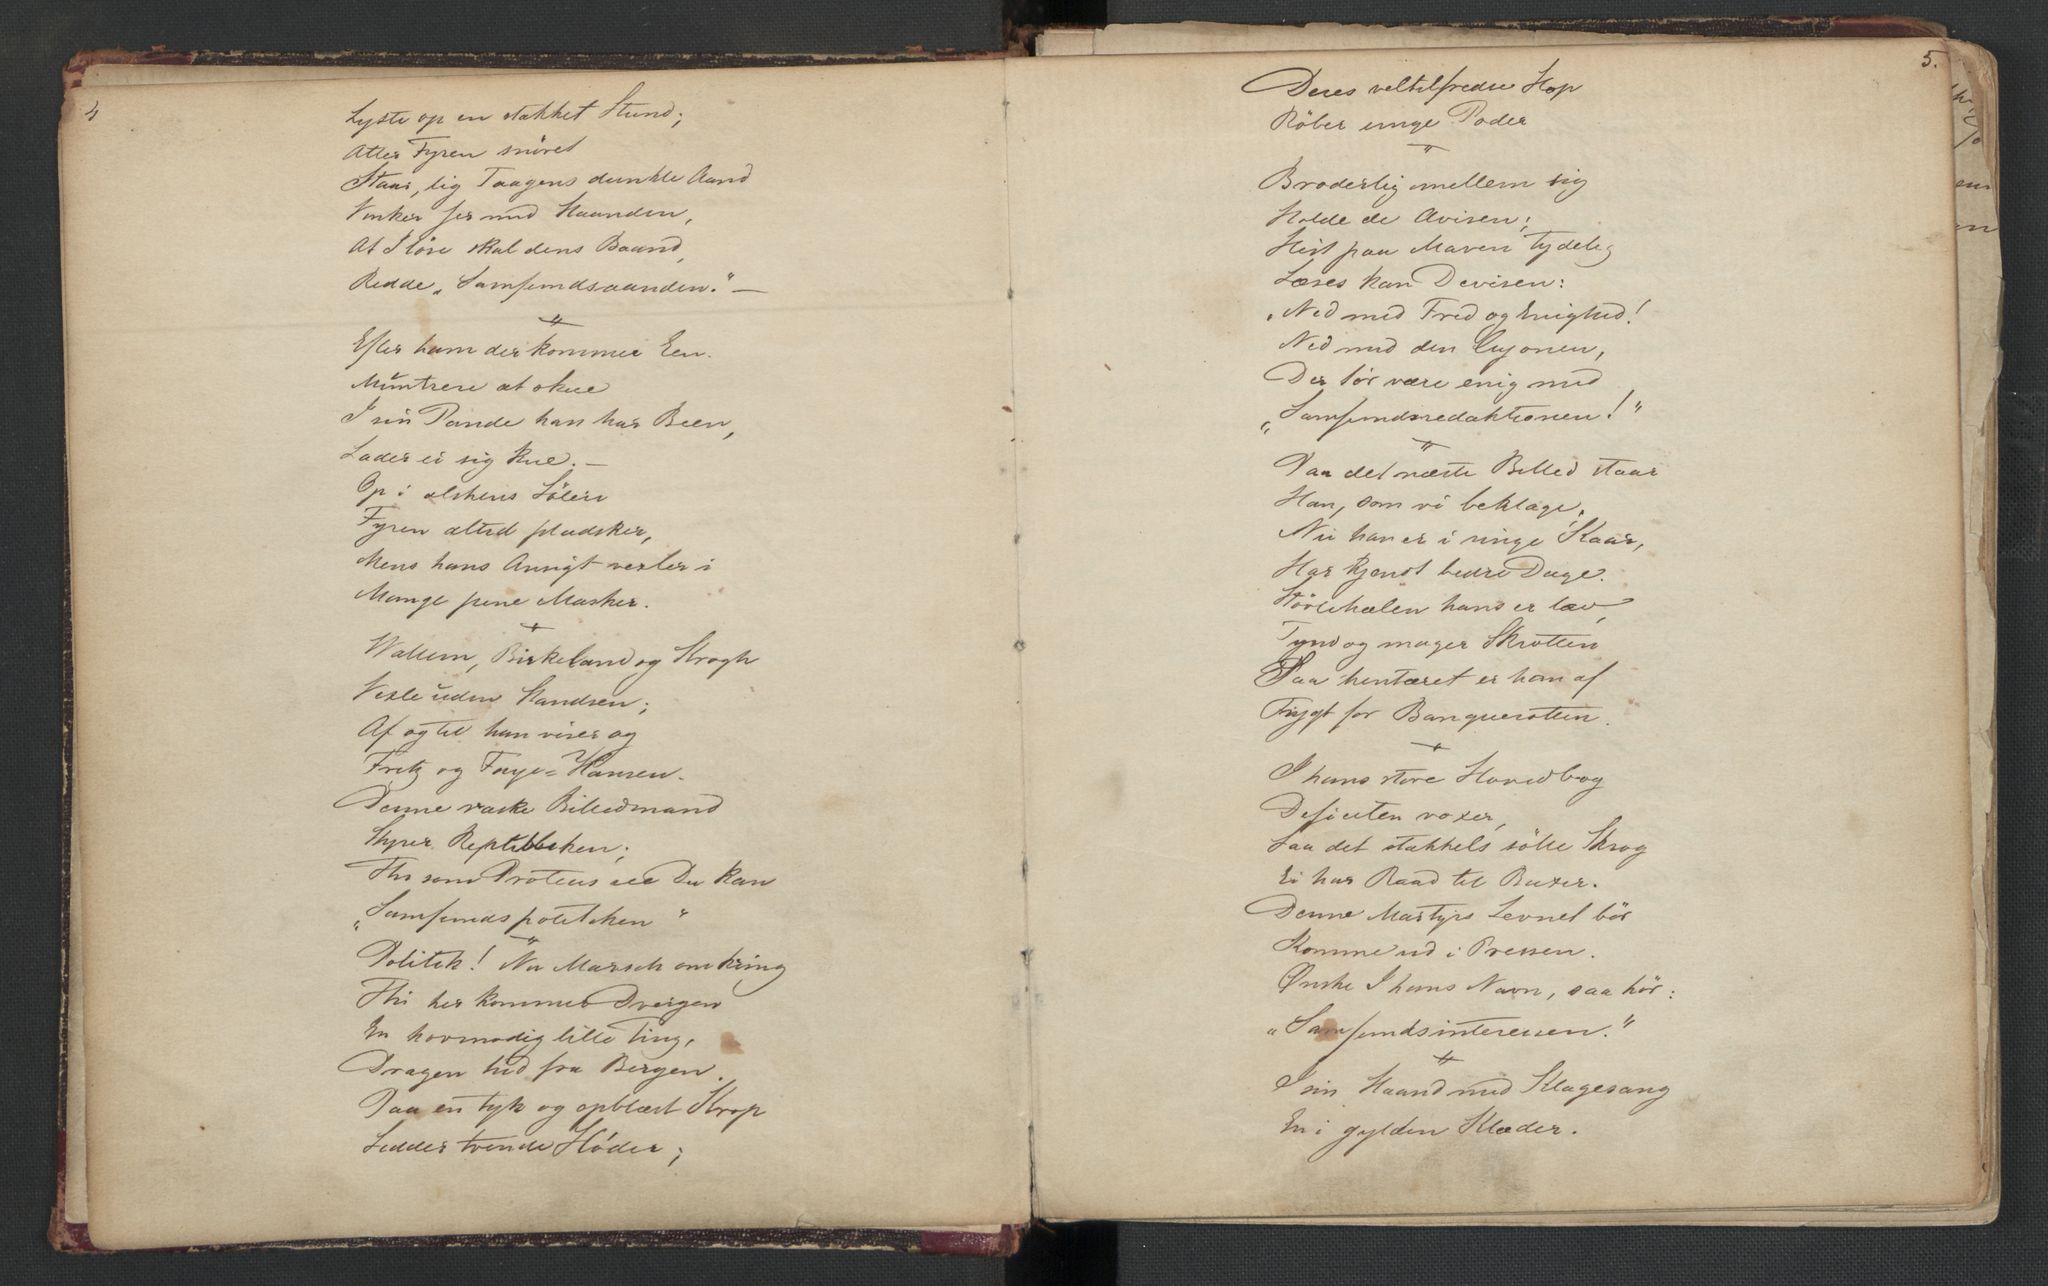 4
Lyste op en stakket Stund;
Atter Fyren snöret
Staar, lig Taagens dunkle Aand
Vinker Jer med Haanden,
At I löse skal dens Baand,
Redde „Samfundsaanden.“ —
Efter ham der kommer Een.
Muntrere at skue
I sin Pande han har Been,
Lader ei sig kue. —
Op i alskens Söleri
Fyren altid pladsker,
Mens hans Ansigt vexler i
Mange pene Masker.
Wallem, Birkeland og Krogh
Vexle uden Standsen;
Af og til han viser og
Fritz og Faye=Hansen.
Denne raske Billedmand
Styrer Republiken;
Thi som Proteus see Du kan
„Samfundspolitiken“
Politik! Nu Marsch omkring
Thi her kommer Dvergen
En hovmodig lille Ting,
Dragen hid fra Bergen.
Paa en tyk og opblæst Krop
Sidder tvende Hoder;
5.
Deres veltilfredse Hop
Röber unge Poder
Broderlig mellem sig
Holde de Avisen;
Hist paa Maven tydelig
Læses kan Devisen:
„Ned med Fred og Enighed!
Ned med den Cujonen,
Der tör være enig med
„Samfundsredaktionen!“
Paa det næste Billed staar
Han, som vi beklage,
Nu han er i ringe Kaar,
Har kjendt bedre Dage.
Störlehælen hans er lav,
Tynd og mager Skrotten
Saa hentæret er han af
Frygt for Banquerotten.
I hans store Hovedbog
Deficiten voxer,
Saa det stakkels sölle Skrog
Ei har Raad til Buxer.
Denne Martyrs Levnet bör
Komme ud i Pressen.
Ønske I hans Navn, saa hör:
„Samfundsinteressen.“
I sin Haand med Klagesang
En i gylden Klæder.